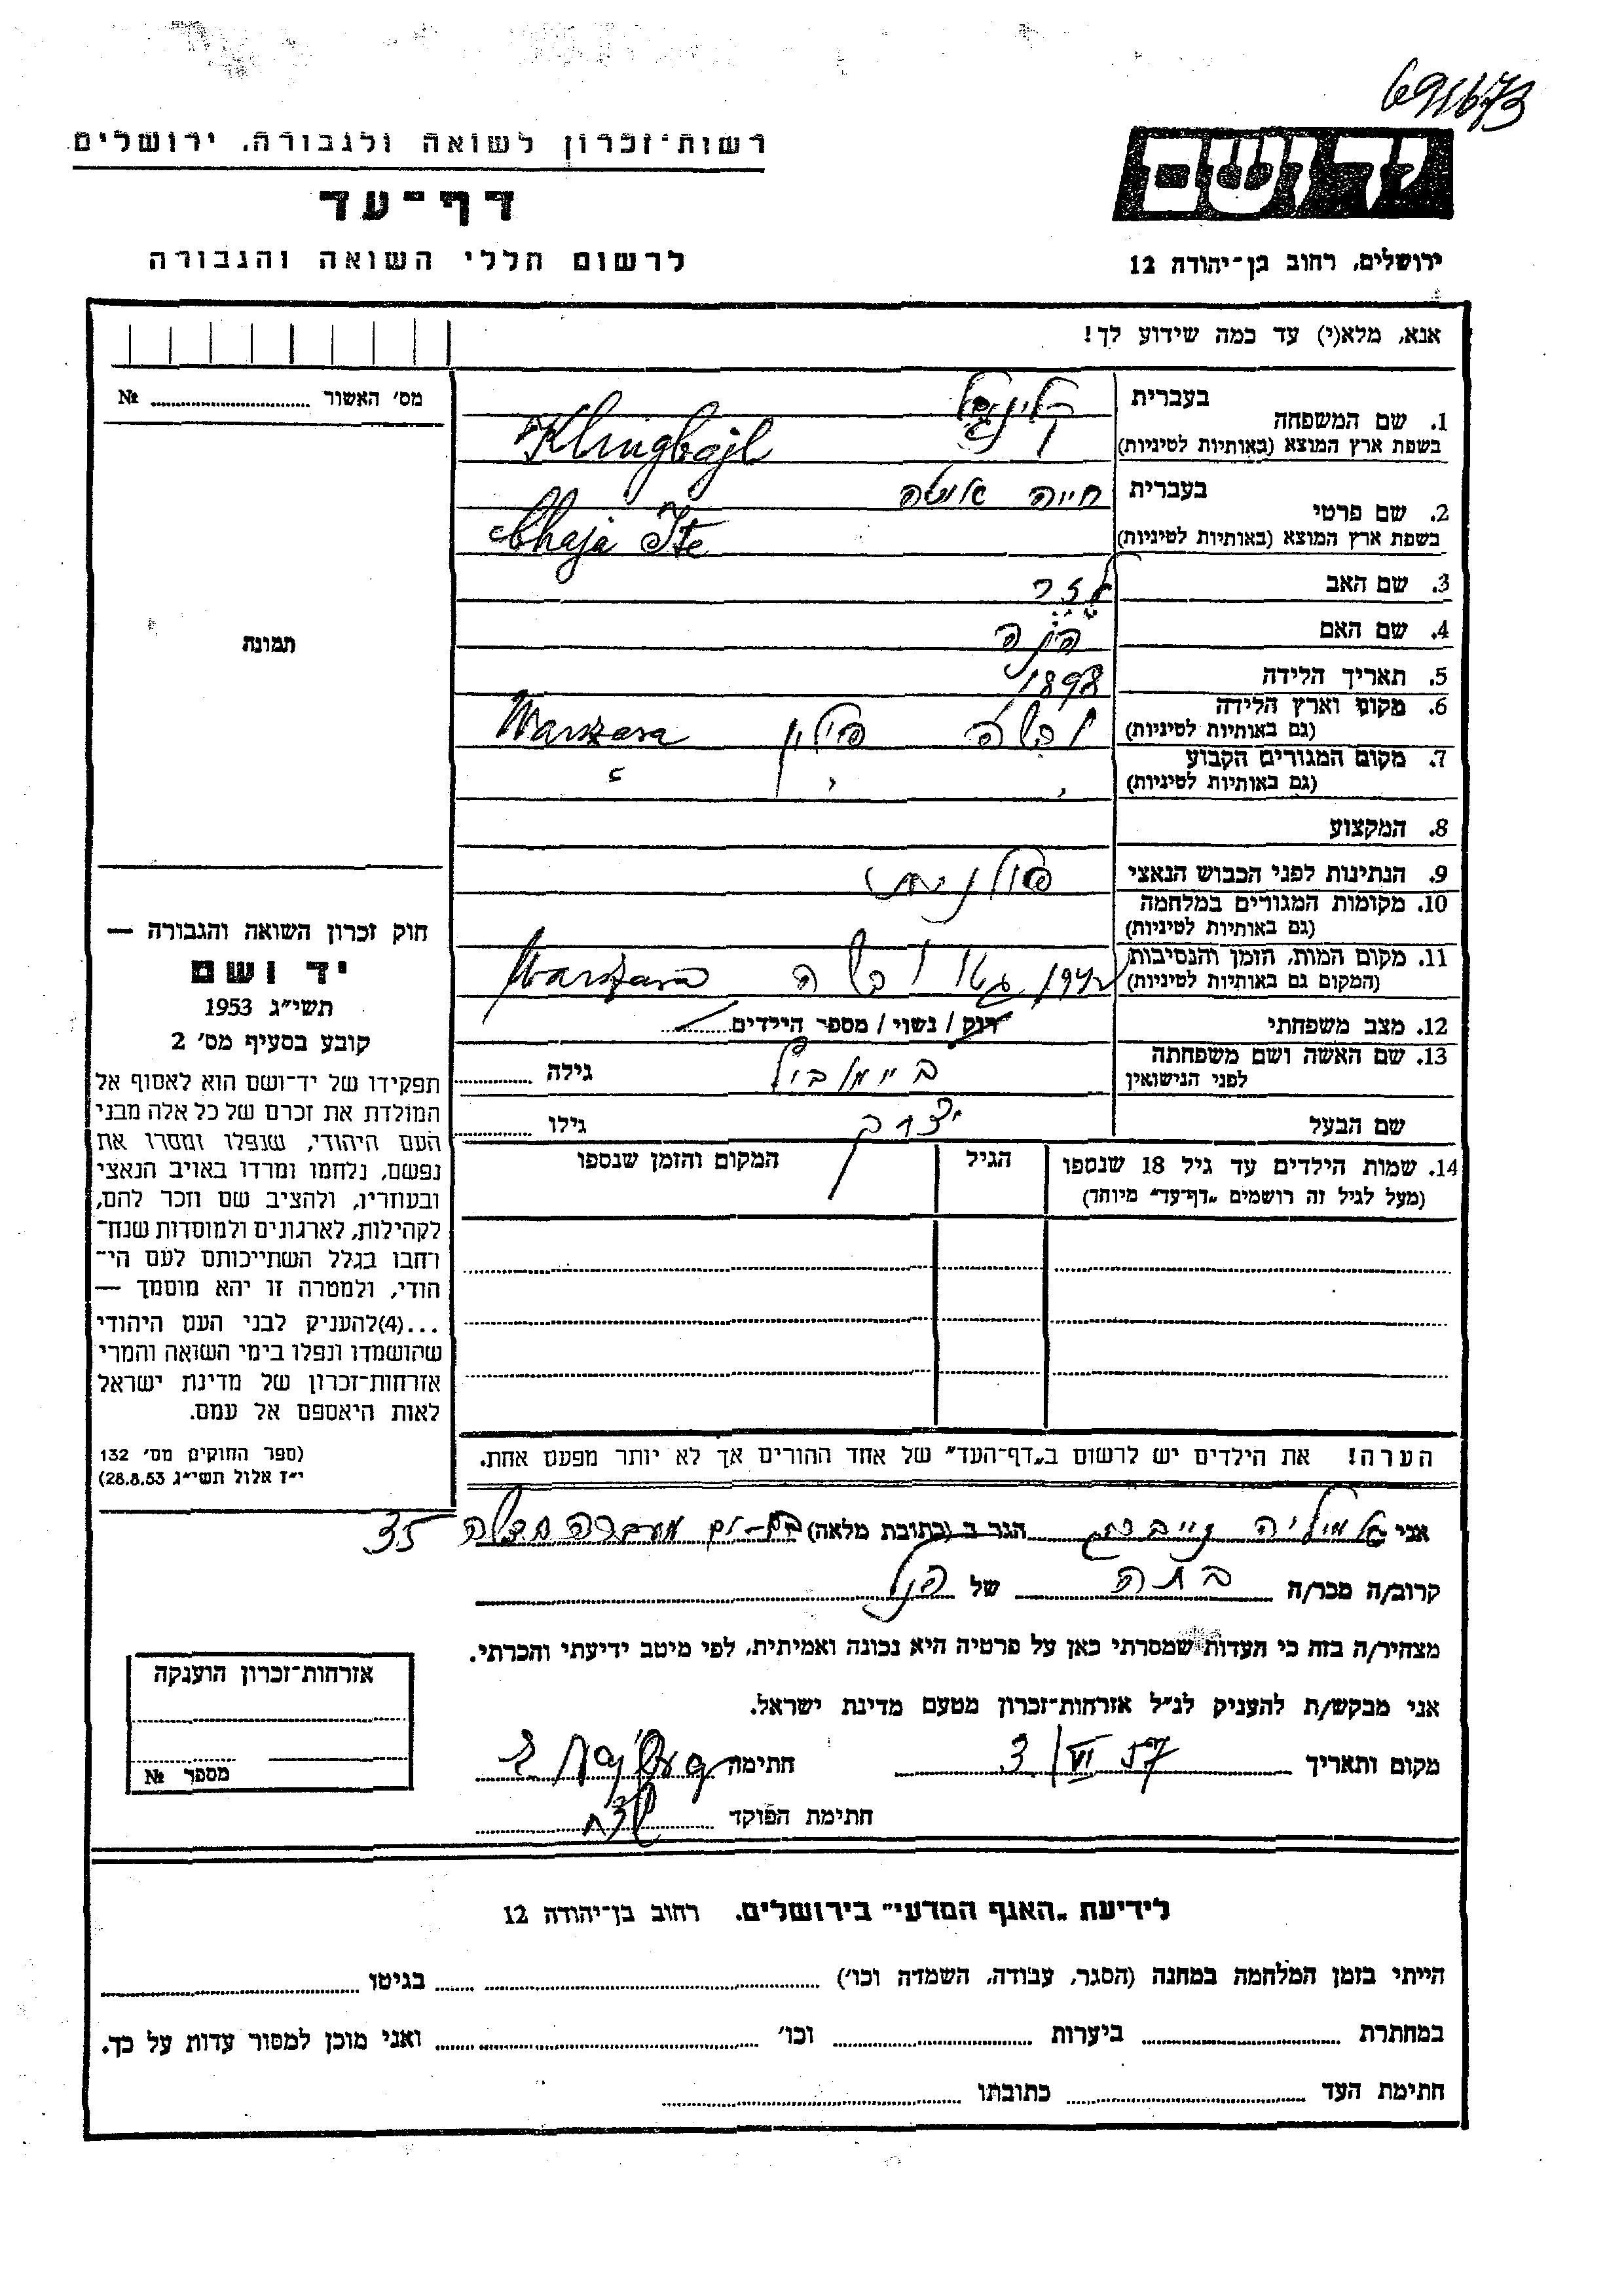 691673
רשות־זכרון לשואה ולגבורה. ירושלים
דף־עד
לרשום חללי השואה והגבורה
יד ושם
ירושלים, רחוב בן־יהודה 12
אנא, מלא(י) עד כמה שידוע לך!
מס׳ האשור № 
1. שם המשפחה
בעברית
בשפת ארץ המוצא (באותיות לטיניות) Klingbajl
2. שם פרטי
בעברית חייה איטה
בשפת ארץ המוצא (באותיות לטיניות) Chaja Ite
3. שם האב לזר
4. שם האם
5. תאריך הלידה 1898
6. מקום וארץ הלידה
(גם באותיות לטיניות) ורשה פולין Warszawa
7. מקום המגורים הקבוע
(גם באותיות לטיניות) " " "
8. המקצוע
9. הנתינות לפני הכבוש הנאצי פולנית
10. מקומות המגורים במלחמה
(גם באותיות לטיניות)
11. מקום המות, הזמן והנסיבות
(המקום גם באותיות לטיניות) גטו ורשה Warszawa
12. מצב משפחתי רוק / נשוי / מספר הילדים
13. שם האשה ושם משפחתה
לפני הנישואין גילה
שם הבעל יצחק גילו
14. שמות הילדים עד גיל 18 שנספו
(מעל לגיל זה רושמים „דף־עד” מיוחד)
הגיל
המקום והזמן שנספו
הערה! את הילדים יש לרשום ב„דף־העד” של אחד ההורים אך לא יותר מפעם אחת.
תמונה
חוק זכרון השואה והגבורה —
יד ושם
תשי״ג 1953
קובע בסעיף מס׳ 2
תפקידו של יד־ושם הוא לאסוף אל
המולדת את זכרם של כל אלה מבני
העם היהודי, שנפלו ומסרו את
נפשם, נלחמו ומרדו באויב הנאצי
ובעוזריו, ולהציב שם וזכר להם,
לקהילות, לארגונים ולמוסדות שנח־
רחבו בגלל השתייכותם לעם הי־
הודי, ולמטרה זו יהא מוסמך —
...(4)להעניק לבני העם היהודי
שהושמדו ונפלו בימי השואה והמרי
אזרחות־זכרון של מדינת ישראל
לאות היאספם אל עמם.
(ספר החוקים מס׳ 132
י״ז אלול תשי״ג 28.8.53)
אני אמיליה הגר ב (כתובת מלאה) בת-ים מעברה 35
קרוב/ה מכר/ה בתה של הנ״ל
מצהיר/ה בזה כי העדות שמסרתי כאן על פרטיה היא נכונה ואמיתית, לפי מיטב ידיעתי והכרתי.
אני מבקש/ת להעניק לנ״ל אזרחות־זכרון מטעם מדינת ישראל.
מקום ותאריך 3/VI 57 חתימה
חתימת הפוקד
אזרחות־זכרון הוענקה
מספר №
לידיעת „האגף המדעי” בירושלים. רחוב בן־יהודה 12
הייתי בזמן המלחמה במחנה (הסגר, עבודה, השמדה וכו׳) בגיטו
במחתרת ביערות וכו׳ ואני מוכן למסור עדות על כך.
חתימת העד כתובתו